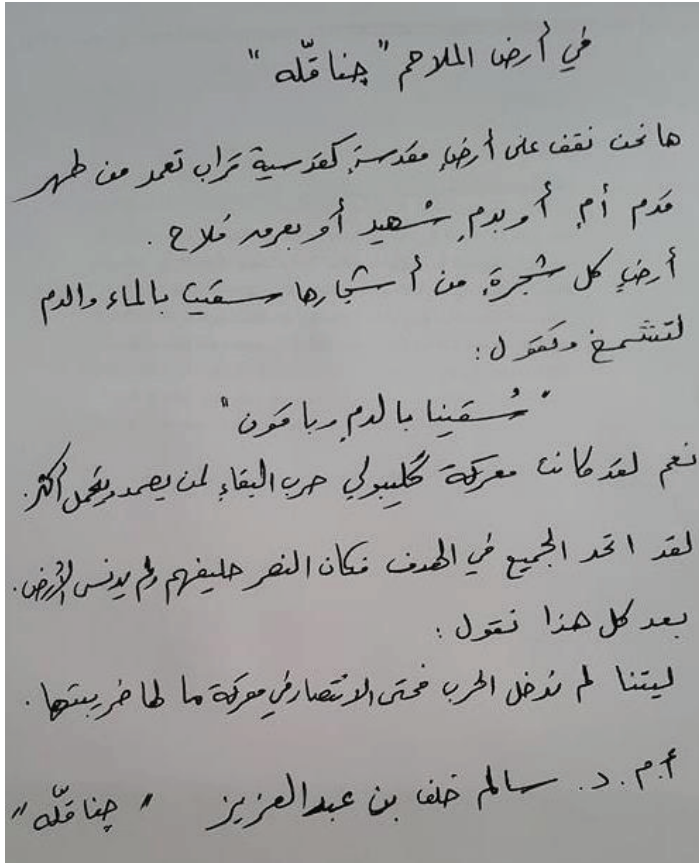 في أرض الملاحم "چناقلّه"
ها نحن نقف على أرضٍ مقدسةٍ كقدسية تراب تعمد من طهر
قدم أمٍ أو بدمِ شهيد أو بعرق فلاح .
أرضٍ كل شجرةٍ من أشجارها سقيت بالماء والدم
لتشمخ وتقول :
"سُقينا بالدمِ وباقون"
نعم لقد كانت معركة گليبولي حرب البقاءِ لمن يصمد ويتحمل أكثر .
لقد اتحد الجميع في الهدف فكان النصر حليفهم ولم يدنس الأرض .
بعد كل هذا نقول :
ليتنا لم ندخل الحرب فحتى الانتصار في معركة ما لها ضريبتها .
أ.م.د. سالم خلف بن عبدالعزيز "چناقلّه"